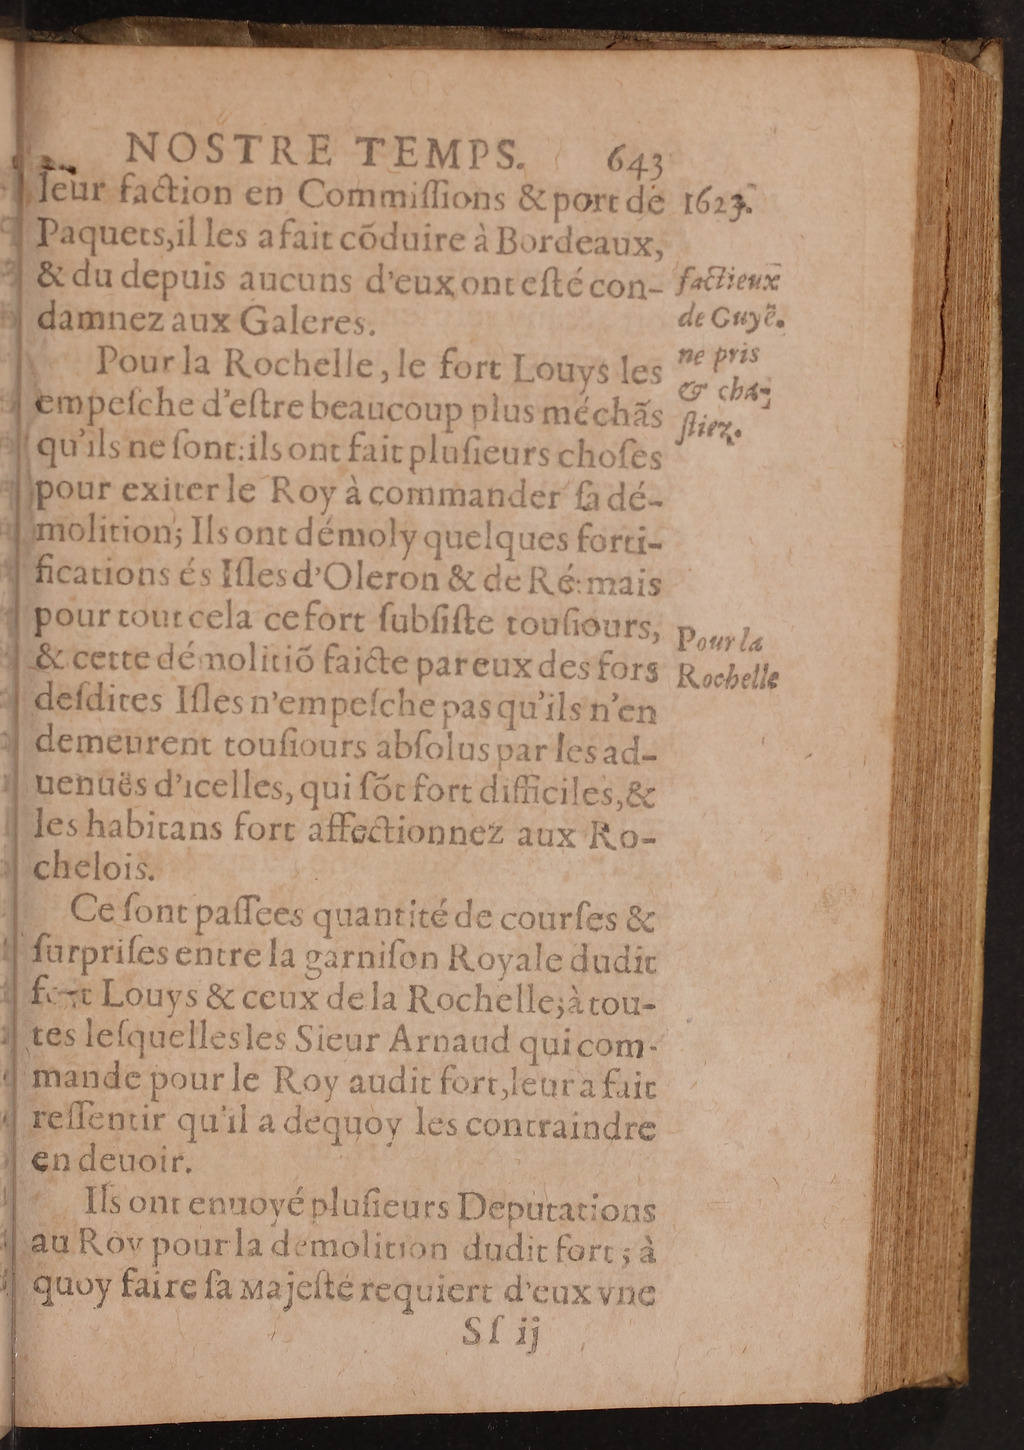 NOSTRE TEMPS. 643
leur faction en Commiſſions & port de
Paquets, il les a fait cõduire à Bordeaux,
& du depuis aucuns d'eux ont eſté con-
damnez aux Galeres.
Pour la Rochelle, le fort Louys les
empeſche d'eſtre beaucoup plus méchãs
qu'ils ne ſont: ils ont fait pluſieurs choſes
pour exiter le Roy à commander ſa dé-
molition; Ils ont démoly quelques forti-
fications és Iſles d'Oleron & de Ré: mais
pour tout cela ce fort ſubſiſte touſiours,
& cette démolitiõ faicte par eux des fors
deſdites Iſles n'empeſche pas qu'ils n'en
demeurent touſiours abſolus par les ad-
uenuës d'icelles, qui ſõt fort difficiles, &
les habitans fort affectionnez aux Ro-
chelois.
Ce ſont paſſees quantité de courſes &
ſurpriſes entre la garniſon Royale dudit
fort Louys & ceux de la Rochelle; à tou-
tes leſquelles les Sieur Arnaud qui com-
mande pour le Roy audit fort, leur a fait
reſſentir qu'il a dequoy les contraindre
en deuoir.
Ils ont enuoyé pluſieurs Deputations
au Roy pour la demolition dudit fort; à
quoy faire ſa Majeſté requiert d'eux vne
Sſ ij
1623.
factieux
de Guyẽ.
ne pris
& cha-
ſtiez.
Pour la
Rochelle